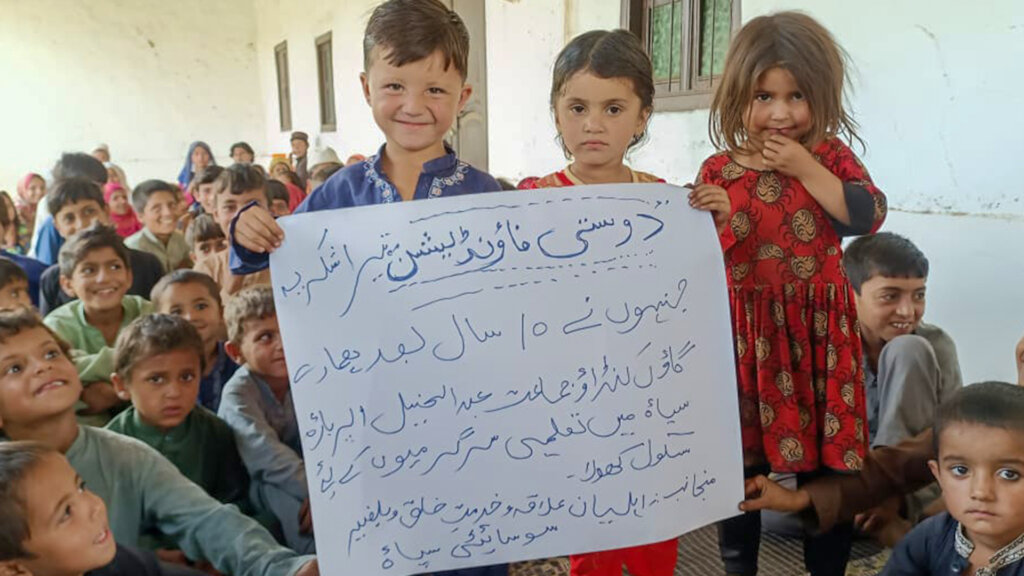 دوستی فاؤنڈیشن تیرا شکریہ
جنہوں نے 10 سال بعد ہمارے
گاؤں جماعت عبدالجنیل اپر باڑہ
سپاہ میں تعلیمی سرگرمیوں کے لئے
سکول کھولا۔
منجانب: اہلیان علاقہ و خدمت خلق ویلفیر
سوسائٹی سپاہ